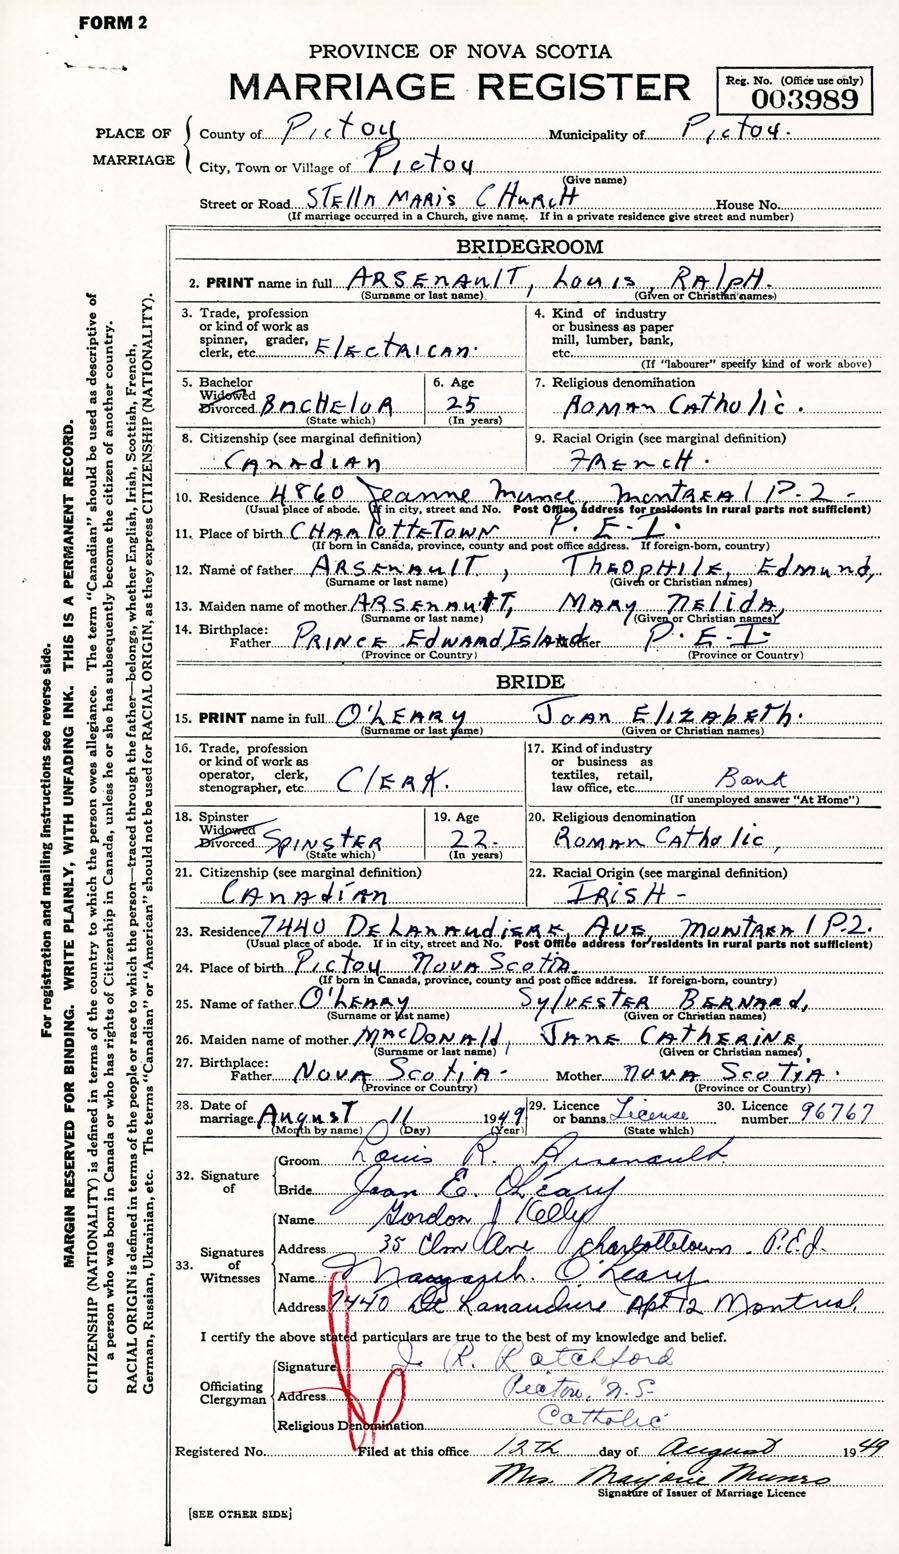 FORM 2
PROVINCE OF NOVA SCOTIA
MARRIAGE REGISTER
Reg. No. (Office use only)
003989
PLACE OF MARRIAGE
County of Pictou Municipality of Pictou.
City, Town or Village of Pictou
(Give name)
Street or Road STEllA MARIS CHURCH House No.
(If marriage occurred in a Church, give name. If in a private residence give street and number)
BRIDEGROOM
2. PRINT name in full ARSENAULT, Louis RAlpH.
(Surname or last name) (Given or Christian names)
3. Trade, profession or kind of work as spinner, grader, clerk, etc. ElEctRICAN.
4. Kind of industry or business as paper mill, lumber, bank, etc.
(If "labourer" specify kind of work above)
5. Bachelor Widowed Divorced BACHELOR
(State which)
6. Age 25
(In years)
7. Religious denomination ROMAN CATHOLIC.
8. Citizenship (see marginal definition) CANADIAN
9. Racial Origin (see marginal definition) FRENCH.
10. Residence 4860 Jeanne Mance, MONTREAL P.2-
(Usual place of abode. If in city, street and No. Post Office address for residents in rural parts not sufficient)
11. Place of birth CHARlOTTETOWN P.E.I.
(If born in Canada, province, county and post office address. If foreign-born, country)
12. Name of father ARSENAULT, THEOPHILE, Edmund,
(Surname or last name) (Given or Christian names)
13. Maiden name of mother ARSENAULT, MARY NELIDA,
(Surname or last name) (Given or Christian names)
14. Birthplace: Father PRINCE EDWARD ISLAND Mother P.E.I.
(Province or Country) (Province or Country)
BRIDE
15. PRINT name in full O'LEARY JOAN ELIZABETH.
(Surname or last name) (Given or Christian names)
16. Trade, profession or kind of work as operator, clerk, stenographer, etc. ClERK.
17. Kind of industry or business as textiles, retail, law office, etc. Bank
(If unemployed answer "At Home")
18. Spinster Widowed Divorced SPINSTER
(State which)
19. Age 22-
(In years)
20. Religious denomination ROMAN CATHOLIC,
21. Citizenship (see marginal definition) CANADIAN
22. Racial Origin (see marginal definition) IRISH-
23. Residence 7440 DELANAUDIERE, AVE, MONTREAL P.2.
(Usual place of abode. If in city, street and No. Post Office address for residents in rural parts not sufficient)
24. Place of birth Pictou NOVA SCOTIA.
(If born in Canada, province, county and post office address. If foreign-born, country)
25. Name of father O'LEARY SYLVESTER BERNARD,
(Surname or last name) (Given or Christian names)
26. Maiden name of mother MACDONALD, JANE CATHERINE,
(Surname or last name) (Given or Christian names)
27. Birthplace: Father NOVA SCOTIA- Mother NOVA SCOTIA.
(Province or Country) (Province or Country)
28. Date of marriage August 11 1949
(Month by name) (Day) (Year)
29. Licence or banns License
(State which)
30. Licence number 96767
32. Signature of
Groom Louis R. Arsenault
Bride Joan E. O'Leary
33. Signatures of Witnesses
Name Gordon J Kelly
Address 35 Elm Ave Charlottetown. P.E.I.
Name Margaret. O'Leary
Address 7440 De Lanaudiere Apt 12 Montreal
I certify the above stated particulars are true to the best of my knowledge and belief.
Officiating Clergyman
Signature J. R. Ratchford
Address Pictou, N.S.
Religious Denomination Catholic
Registered No. Filed at this office 12th day of August 1949
Mrs. Marjorie Munro
Signature of Issuer of Marriage Licence
[SEE OTHER SIDE]
For registration and mailing instructions see reverse side.
MARGIN RESERVED FOR BINDING. WRITE PLAINLY, WITH UNFADING INK. THIS IS A PERMANENT RECORD.
CITIZENSHIP (NATIONALITY) is defined in terms of the country to which the person owes allegiance. The term "Canadian" should be used as descriptive of
a person who was born in Canada or who has rights of Citizenship in Canada, unless he or she has subsequently become the citizen of another country.
RACIAL ORIGIN is defined in terms of the people or race to which the person—traced through the father—belongs, whether English, Irish, Scottish, French,
German, Russian, Ukrainian, etc. The terms "Canadian" or "American" should not be used for RACIAL ORIGIN, as they express CITIZENSHIP (NATIONALITY).